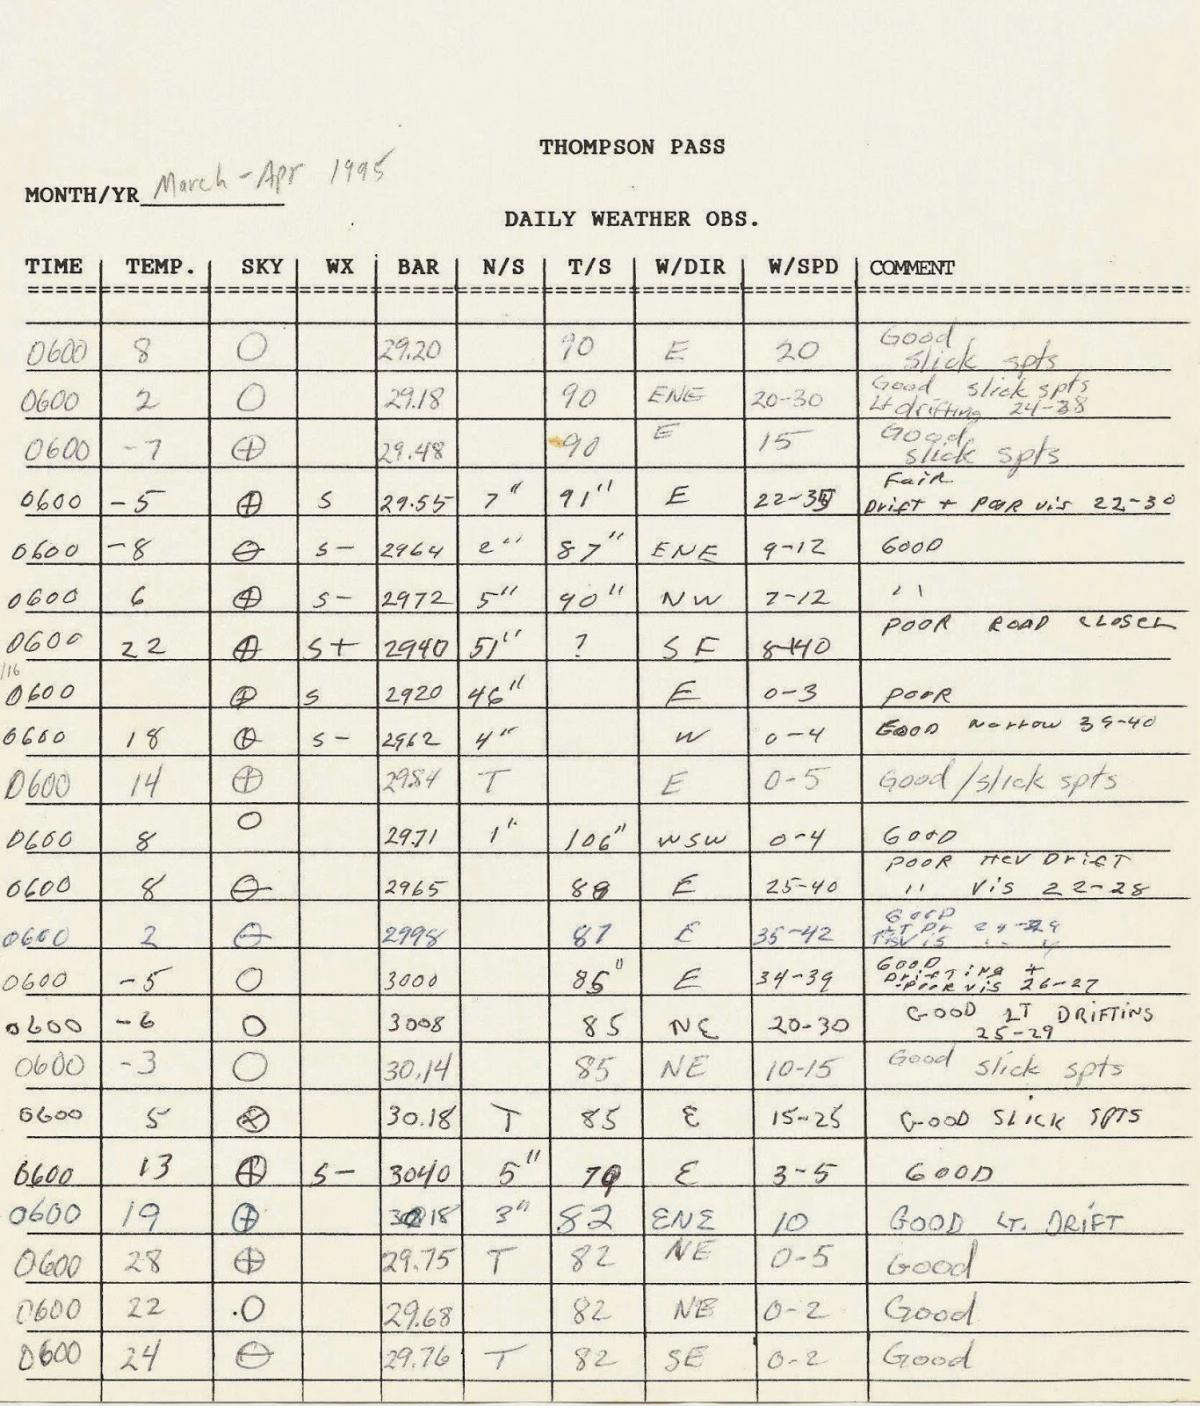 THOMPSON PASS
MONTH/YR March-Apr 1995
DAILY WEATHER OBS.
TIME TEMP. SKY WX BAR N/S T/S W/DIR W/SPD COMMENT
0600 8 29.20 90 E 20 Good slick spts
0600 2 29.18 90 ENE 20-30 Good slick spts
Lt drifting 24-38
0600 -7 29.48 90 E 15 Good slick spts
0600 -5 S 29.55 7" 91" E 22-35 Fair
Drift + Poor vis 22-30
0600 -8 S- 2964 2" 87" ENE 9-12 GOOD
0600 6 S- 2972 5" 90" NW 7-12 ''
0600 22 S+ 2940 51" ? SE 8-40 POOR ROAD CLOSED
/16
0600 S 2920 46" E 0-3 POOR
0600 18 S- 2962 4" W 0-4 GOOD Narrow 39-40
0600 14 29.84 T E 0-5 Good/slick spts
0600 8 29.71 1" 106" WSW 0-4 GOOD
0600 8 2965 88 E 25-40 POOR HEV DriFT
'' Vis 22-28
0600 2 2998 87 E 35-42 GOOD
0600 -5 3000 85" E 34-39 GOOD
Drifting +
Poor vis 26-27
0600 -6 3008 85 NE 20-30 GOOD LT DRIFTING
25-29
0600 -3 30.14 85 NE 10-15 Good slick spts
0600 5 30.18 T 85 E 15-25 GOOD SLICK SPTS
0600 13 S- 3040 5" 79 E 3-5 GOOD
0600 19 3018 3" 82 ENE 10 GOOD LT. DRIFT
0600 28 29.75 T 82 NE 0-5 Good
0600 22 29.68 82 NE 0-2 Good
0600 24 29.76 T 82 SE 0-2 Good